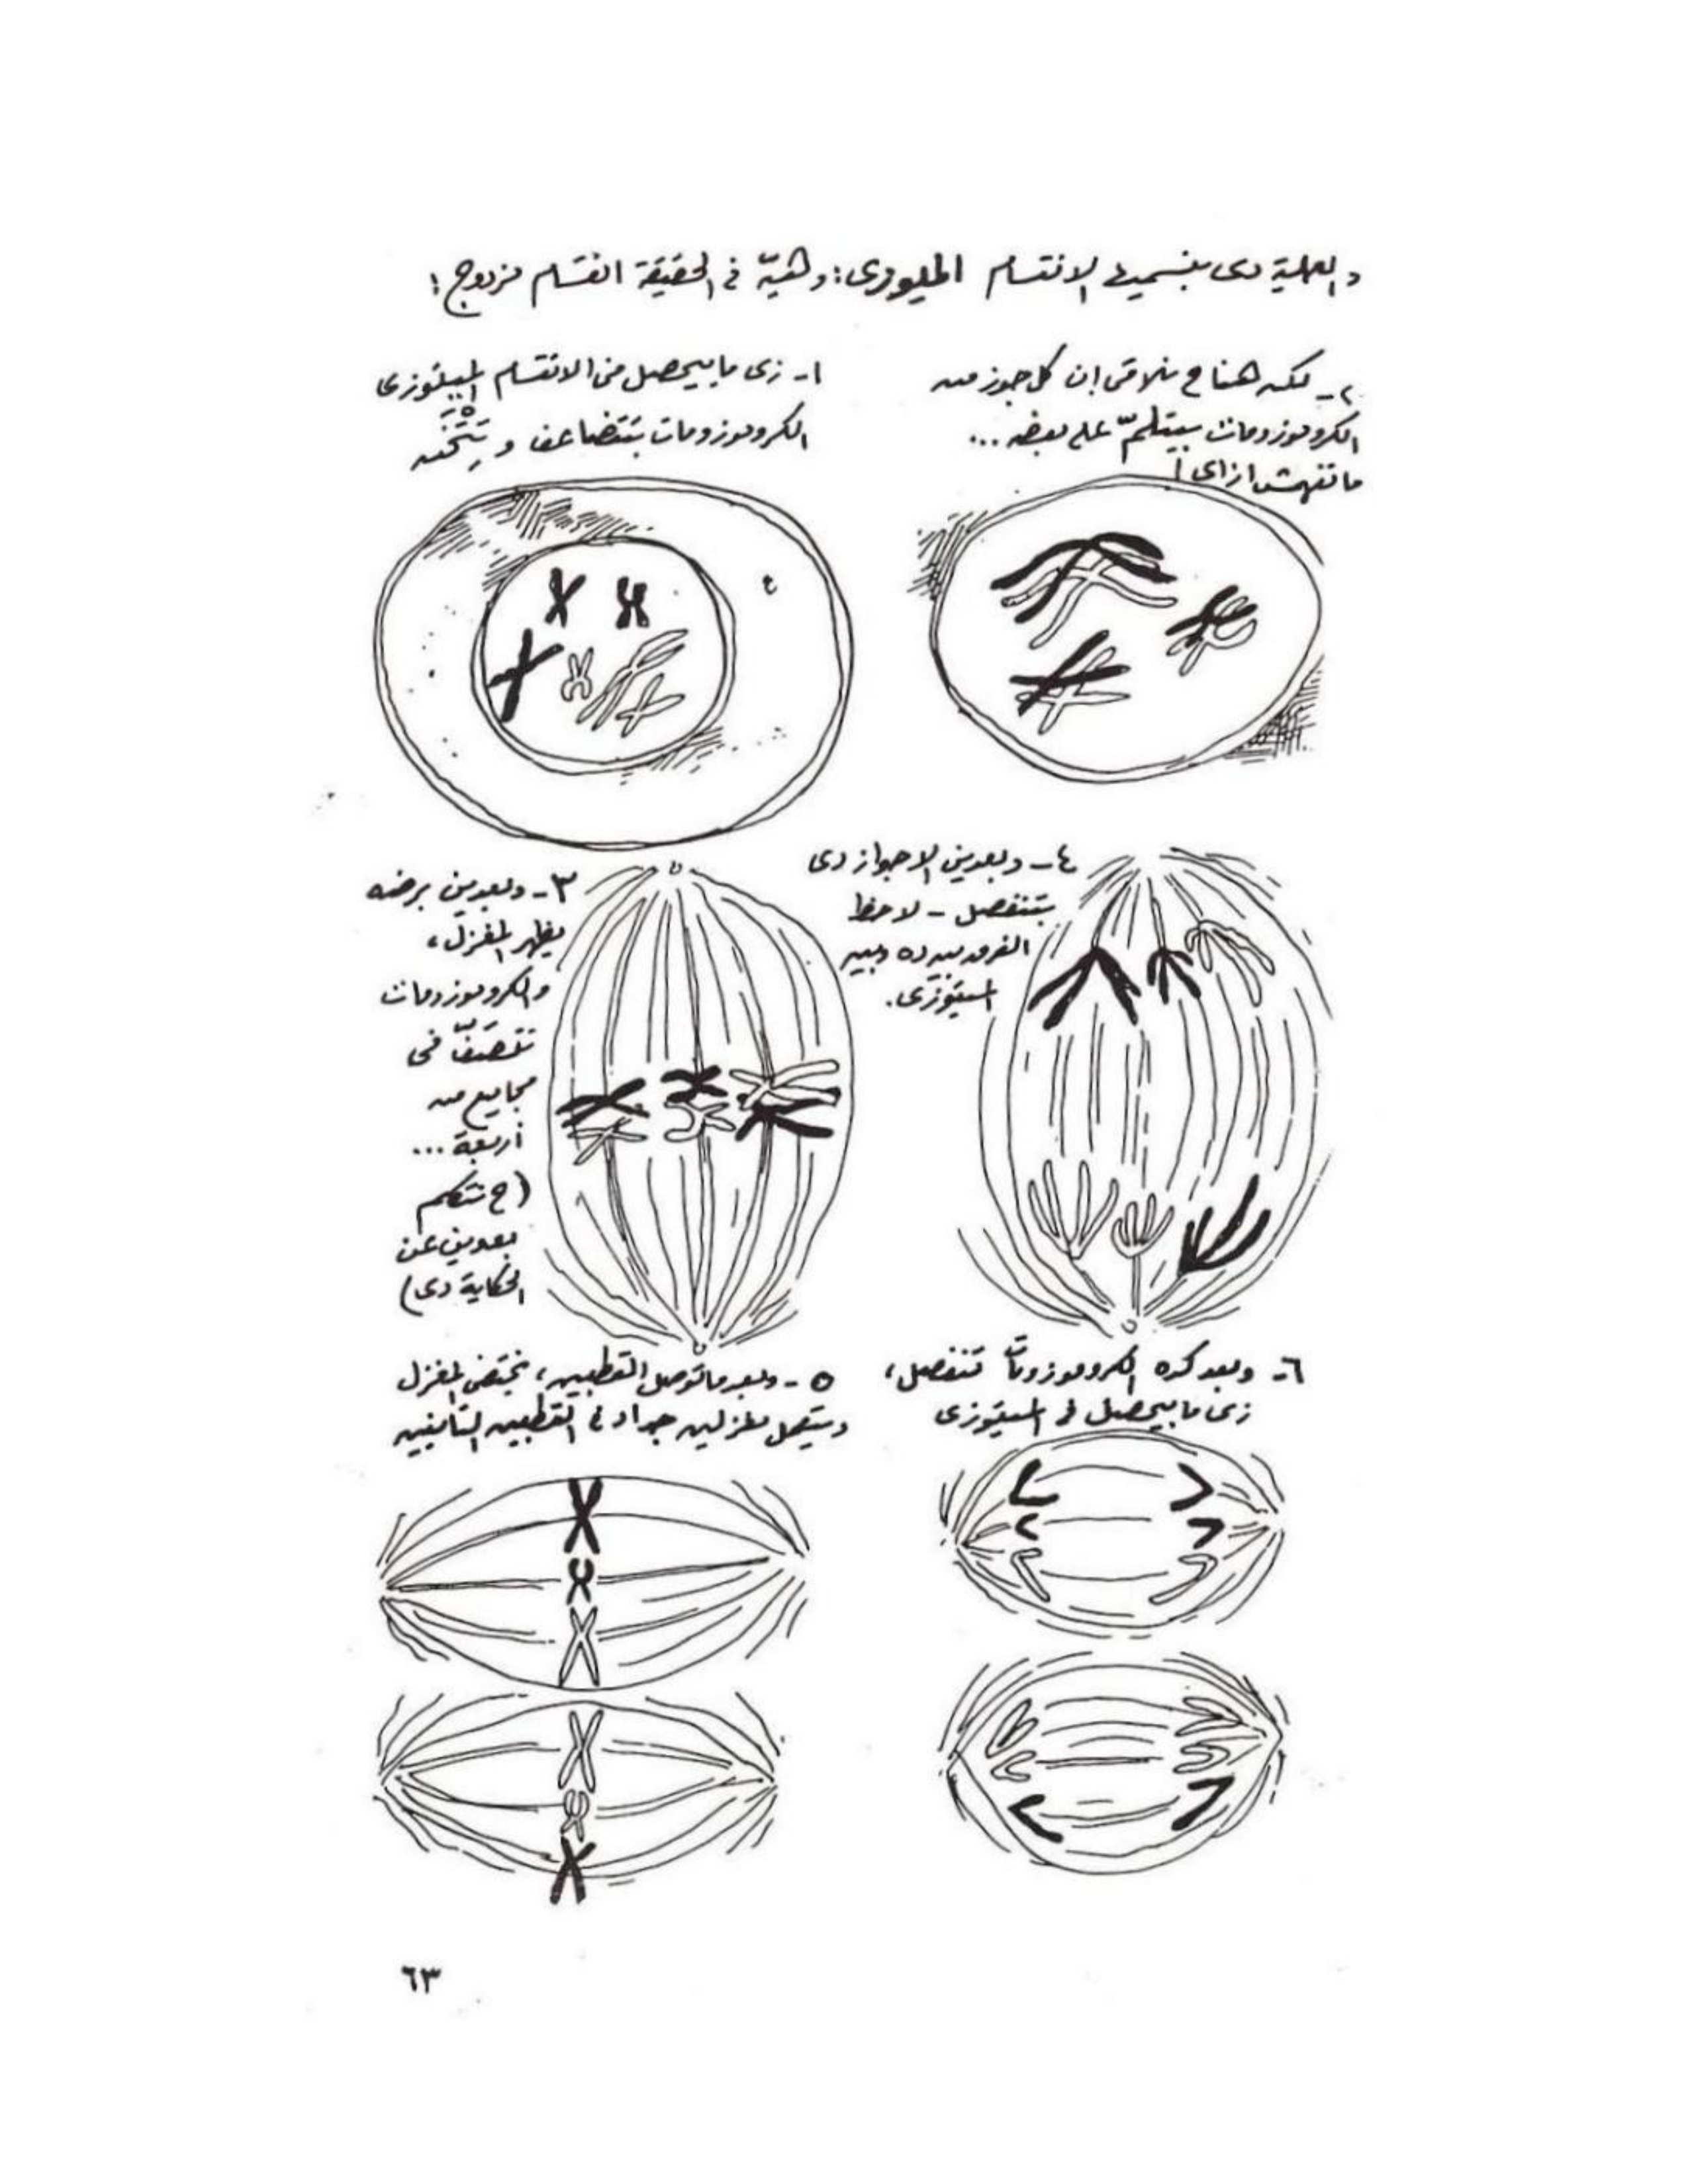 والعملية دى بنسميها الانقسام الميوزى: وهيّه فى الحقيقة انقسام مزدوج:
١- زى ما بيحصل فى الانقسام الميتوزى
الكروموزومات بتتضاعف وتِتْخَن
٢- لكن هنا ح نلاقى إن كل جوز من
الكروموزومات بيتلمّ على بعضه...
ما تفهمش ازاى!
٣- وبعدين برضه
يظهر المغزل،
والكروموزومات
تتصَفّ فى
مجاميع من
أربعة...
(ح نتكلم
بعدين عن
الحكاية دى)
٤- وبعدين الاجواز دى
بتنفصل - لاحظ
الفرق بين ده وبين
الميتوزى.
٥- وبعد ما توصل القطبين، يختفى المغزل
ويتعمل مغزلين جداد فى القطبين التانيين
٦- وبعد كده الكروموزومات تنفصل،
زى ما بيحصل فى الميتوزى
٦٣